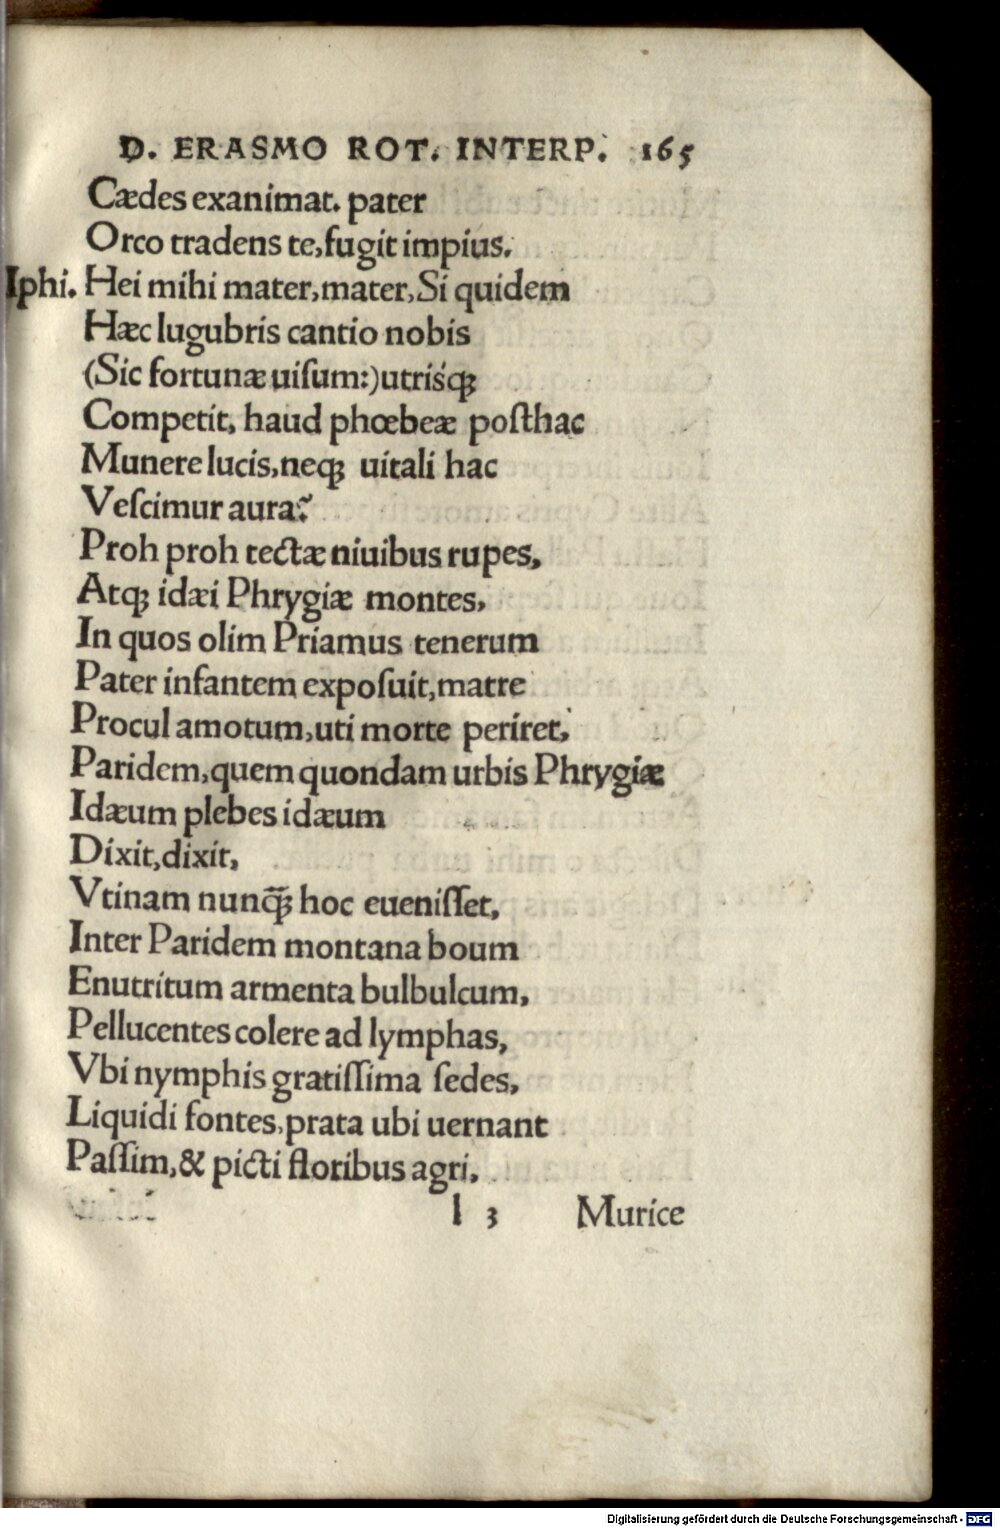 D. ERASMO ROT. INTERP. 165
Cædes exanimat. pater
Orco tradens te,fugit impius.
Iphi. Hei mihi mater,mater,Si quidem
Hæc lugubris cantio nobis
(Sic fortunæ uiſum:)utriśqꝫ
Competit, haud phœbeæ poſthac
Munere lucis,neqꝫ uitali hac
Veſcimur aura?
Proh proh tectæ niuibus rupes,
Atqꝫ idæi Phrygiæ montes,
In quos olim Priamus tenerum
Pater infantem expoſuit,matre
Procul amotum,uti morte periret,
Paridem,quem quondam urbis Phrygiæ
Idæum plebes idæum
Dixit,dixit,
Vtinam nunq̄ꝫ hoc eueniſſet,
Inter Paridem montana boum
Enutritum armenta bulbulcum,
Pellucentes colere ad lymphas,
Vbi nymphis gratiſſima ſedes,
Liquidi fontes,prata ubi uernant
Paſſim,& picti floribus agri,
l 3 Murice
Digitalisierung gefördert durch die Deutsche Forschungsgemeinschaft - DFG